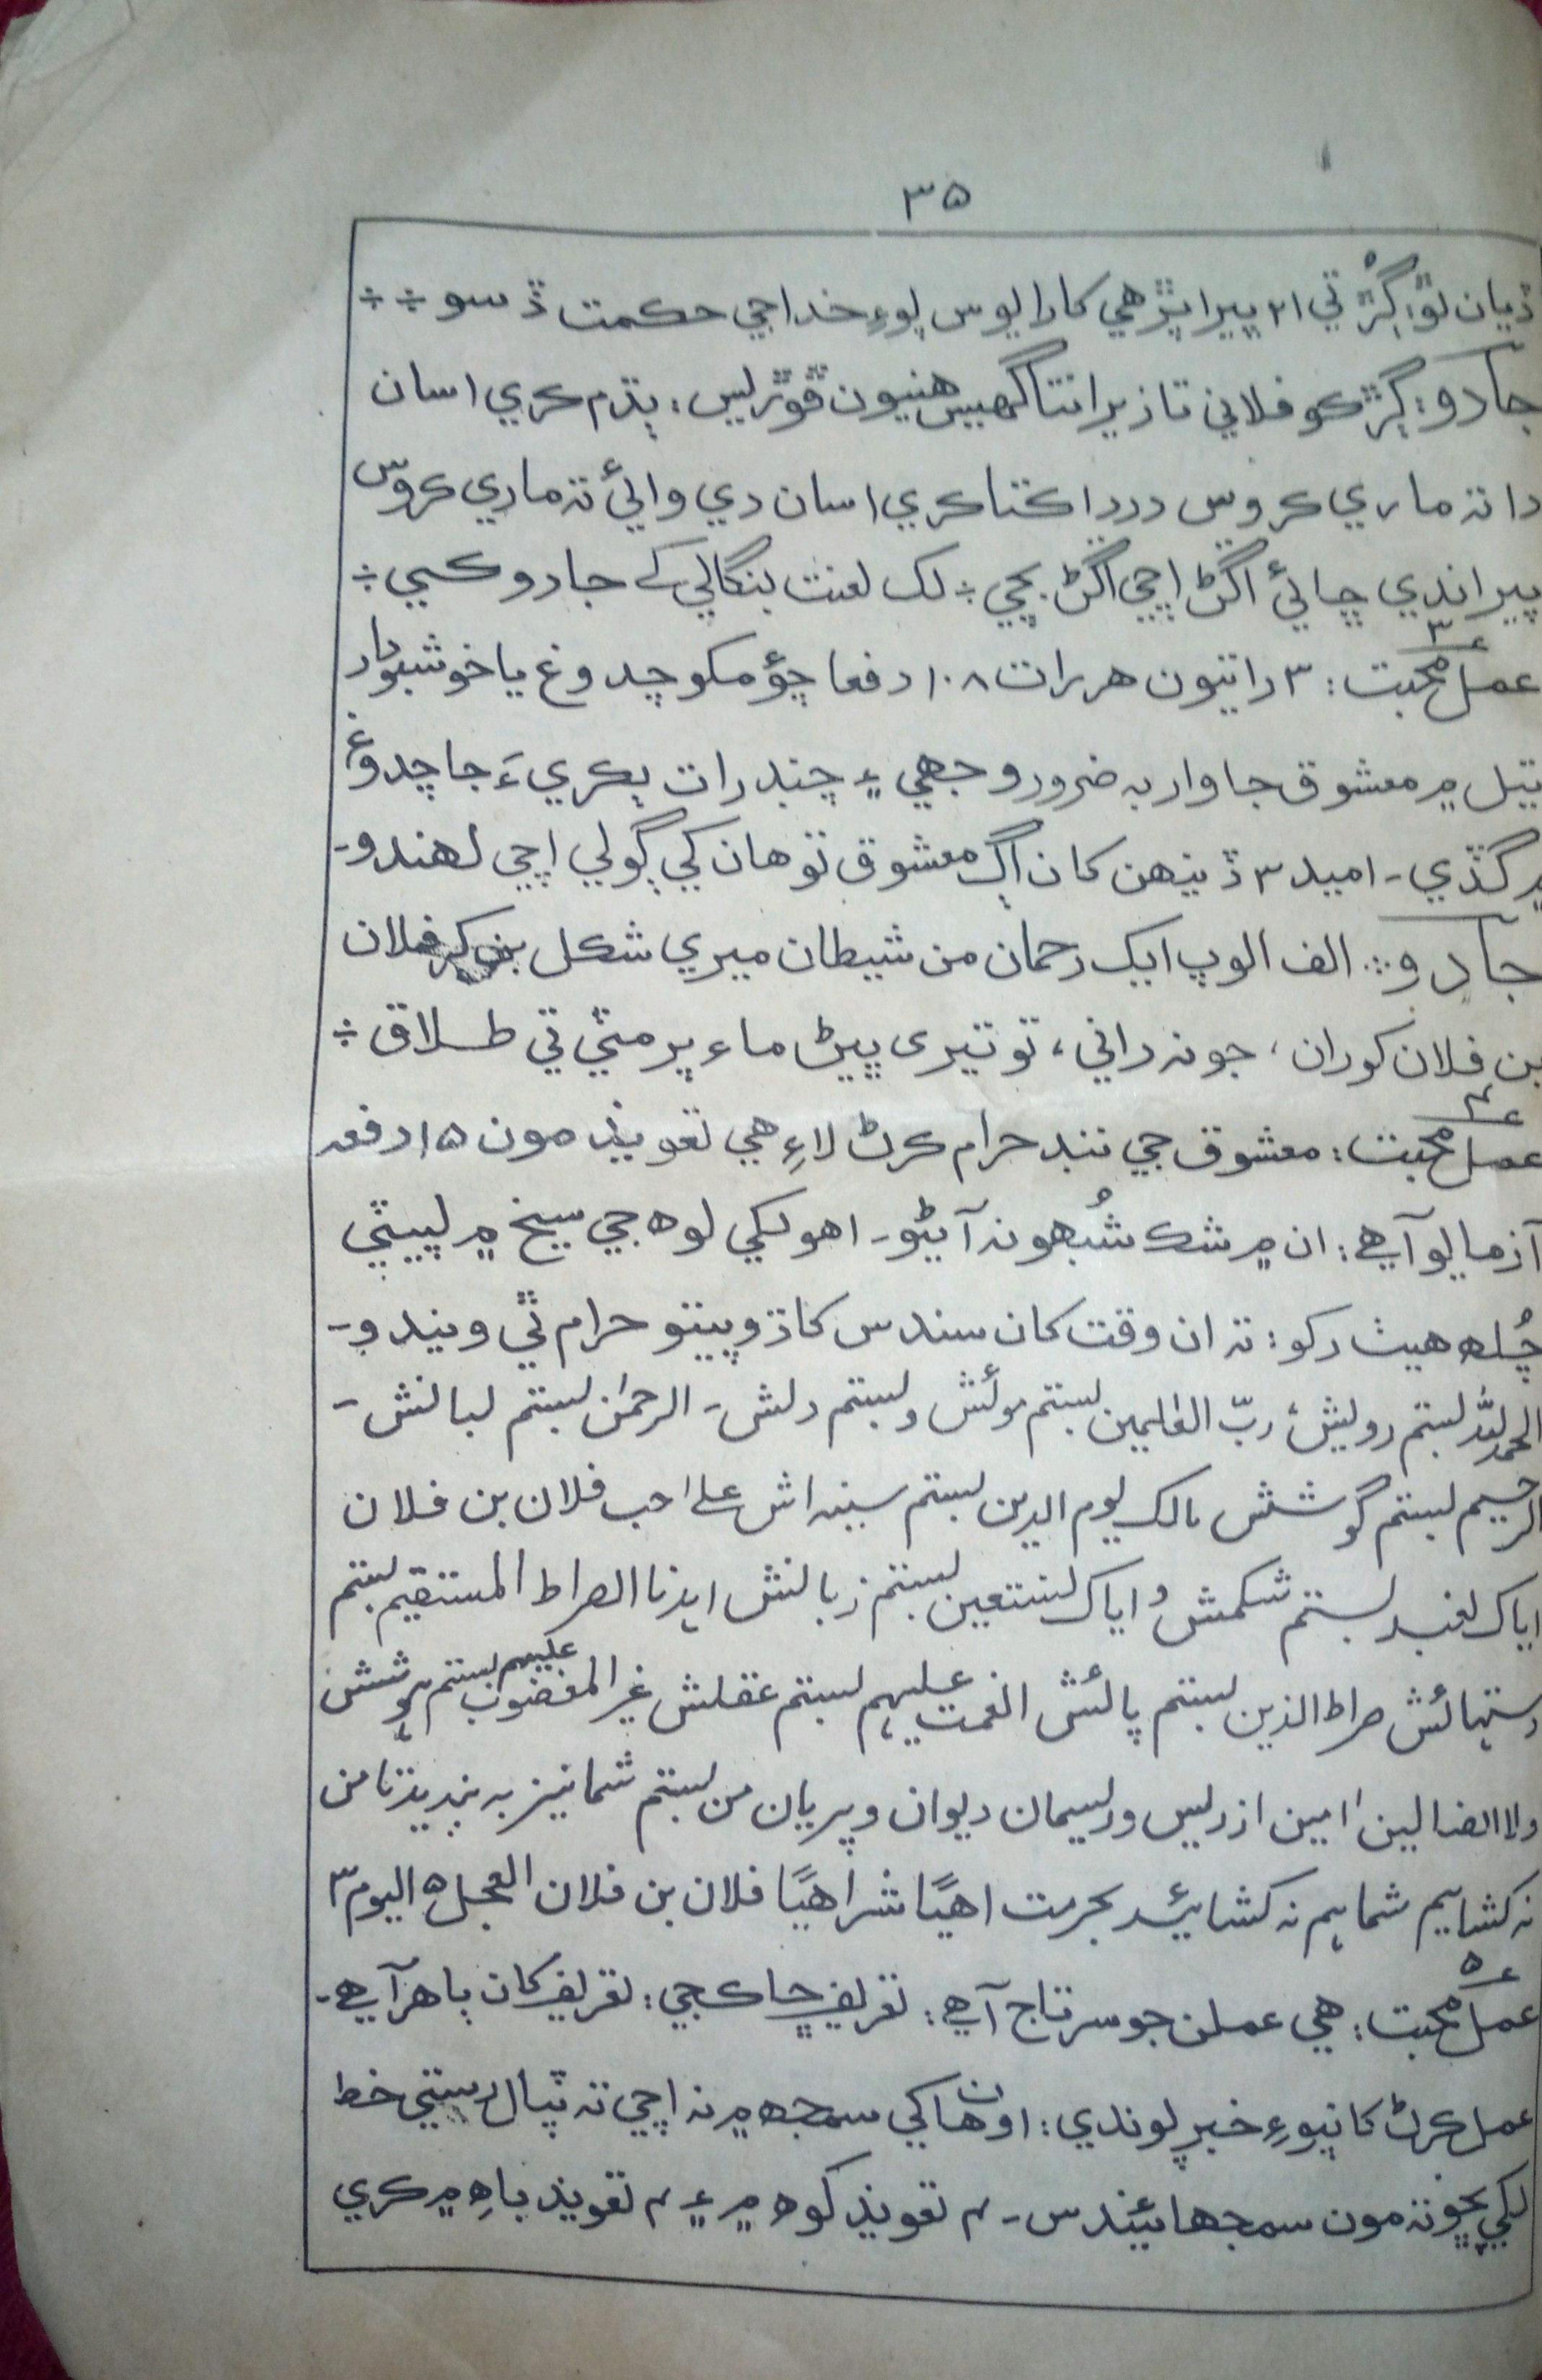 ۳۵
ڌيان لوڙ: ڳڙ تي ۲۱ ڀيرا پڙهي کارايوس پوءِ خدا جي حڪمت ڏسو ÷ ÷
جادو: ڳڙ ڪو فلاني تازيرا نتا گهيس هنيون ڦوڙيس: پڌم ڪري اسان
دا نہ ماري ڪروس دردا ڪتا ڪري اسان دي وائيٰ نہ ماري ڪروس
پير اندي ڇائيٰ اڱڻ اچي اڱڻ بچي ÷ لک لعنت بنگالي کے جادو ڪيي ÷
عمل محبت ع۳: ۳ راتيون هر رات ۱۰۸ دفعا چؤمکو چدوغ يا خوشبودار
تيل ۾ معشوق جا وار بہ ضرور وجهي ۽ چنڊ رات ٻڪريءَ جا چدوغ
۾ گڏي ـ اميد ۳ ڏينهن کان اڳ معشوق توهان کي ڳولي اچي لهندو ـ
جادو ÷ الف الوپ ايک رحمان من شيطان ميري شڪل بن کر فلان
بن فلان کو ران، جو نہ راني، تو تيری ڀيڻ ماء پر مٽي تي طلاق ÷
عمل محبت ع۴: معشوق جي ننڊ حرام ڪرڻ لاءِ هي تعويذ مون ۱۵ دفعہ
آزمايو آهي: ان ۾ شڪ شُبهو نہ آڻيو ـ اهو لکي لوه جي سيخ ۾ لپيٽي
چُله هيٺ رکو: تہ ان وقت کان سندس کاڌو پيتو حرام ٿي ويندو ـ
الحمد للہ بستم رويش، ربّ العٰلمين بستم موئش و بستم دلش ـ الرحمٰن بستم لبانش ـ
الرحيم بستم گوشش مالک يوم الدين بستم سينہ اش علےٰ احب فلان بن فلان
اياک نعبد بستم شکمش و اياک نستعين بستم زبانش اهدنا الصراط المستقيم بستم
دستهائش صراط الذين بستم پائش انعمت عليهم بستم عقلش غير المغضوب عليهم بستم هوشش
ولا الضالين امين از ريس و ريسمان ديوان و پريان من بستم شما نيز به بنديد تا من
نہ کشايم شما ہم نہ کشائيد بحرمت اهيًا شراهيًا فلان بن فلان العجل ۵ اليوم ۳
عمل محبت ع۵: هي عملن جو سرتاج آهي: تعريف ڇا ڪجي: تعريف کان ٻاهر آهي ـ
عمل ڪرڻ کانپوءِ خبر پوندي: اوهان کي سمجھ ۾ نہ اچي تہ ٽپال رستي خط
لکي پڇو تہ مون سمجهائيندس ـ ۴ تعويذ کوه ۾ ۽ ۴ تعويذ باهِ ۾ ڪري